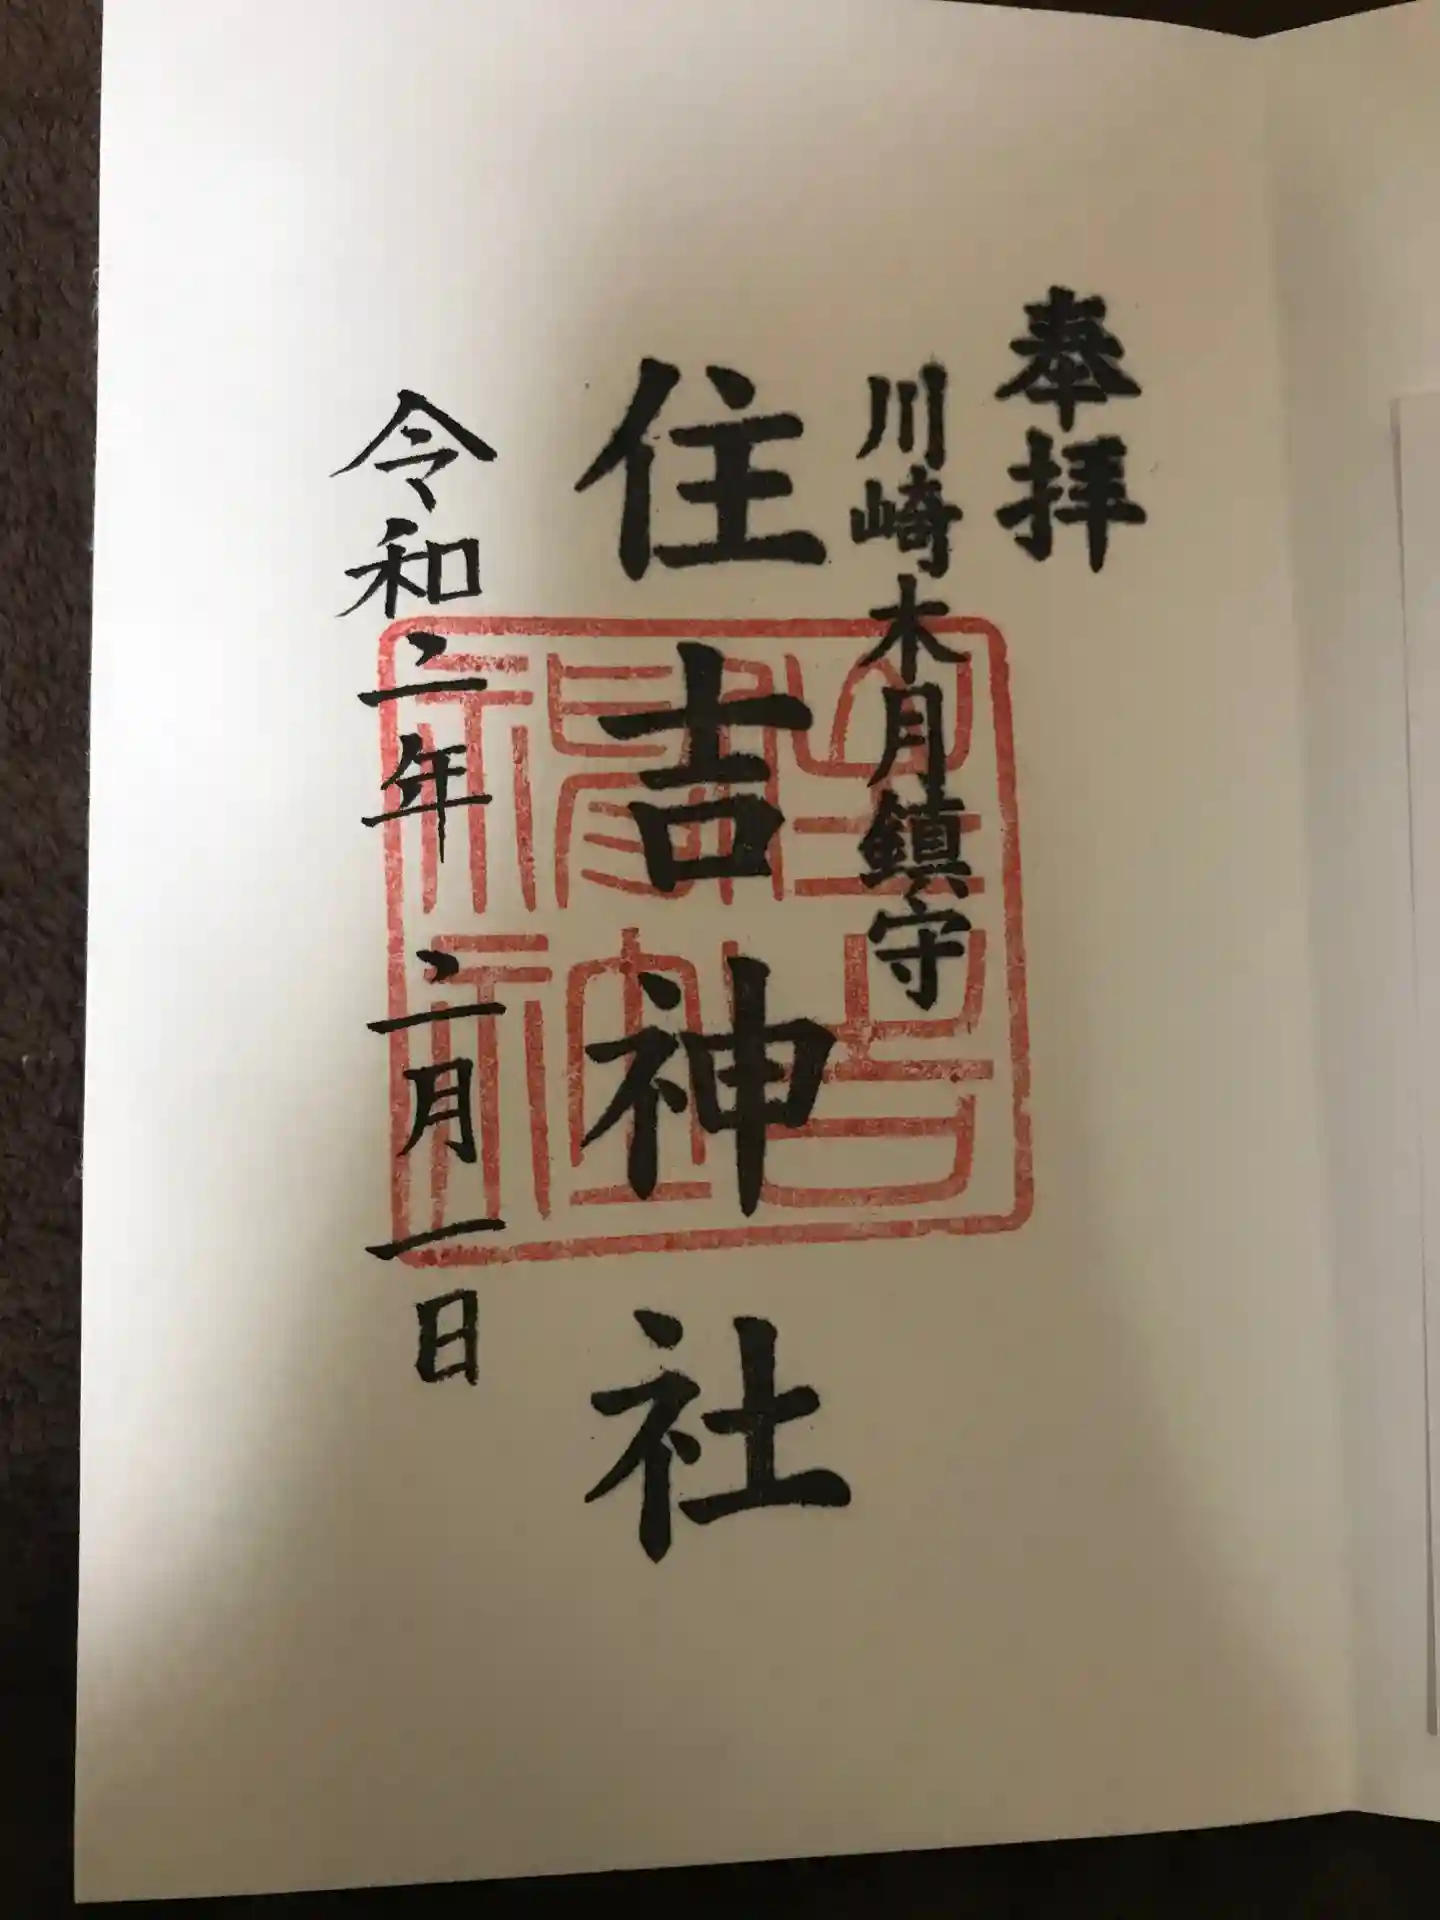 奉拝
川崎木月鎮守
住吉神社
令和二年二月一日